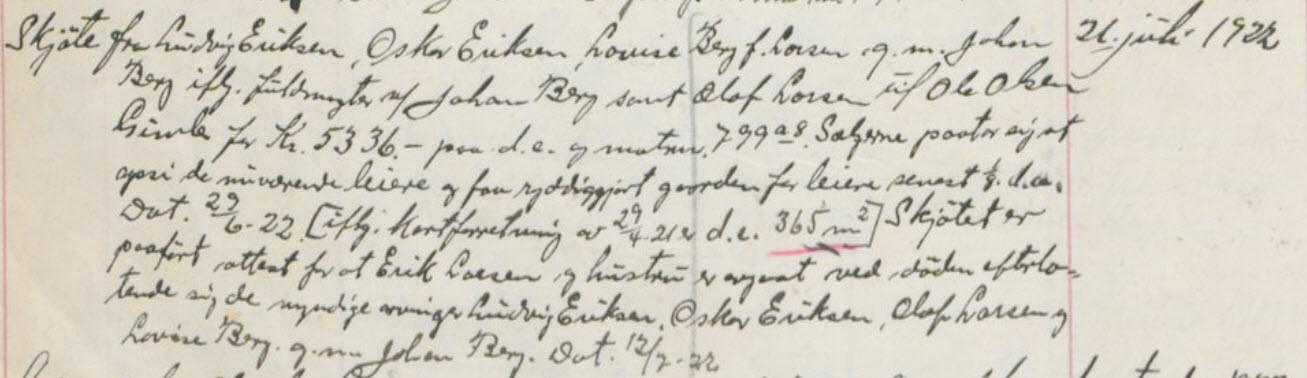 Skjöte fra Ludvig Eriksen, Oskar Eriksen, Lovise Berg f. Larsen g. m. Johan 21. juli 1922
Berg iflg. fuldmagter m/ Johan Berg samt Olaf Larsen til Ole Olsen
Gimle for Kr. 5336.- paa d. e. g matrn. 799 a 8. Sælgerne paatar sig at
opsi de nuværende leiere og faa ryddiggjort gaarden for leiere senest d. a.
Dat. 29/6-22. [iflg. Kartforretning av 29/4.21 er d. e. 365 m²] Skjötet er
paafört attest for at Erik Larsen og hustru er ved döden efterla-
tende sig de myndige arvinger Ludvig Eriksen, Oskar Eriksen, Olaf Larsen og
Lovise Berg. g. m. Johan Berg. Dat. 12/7-22